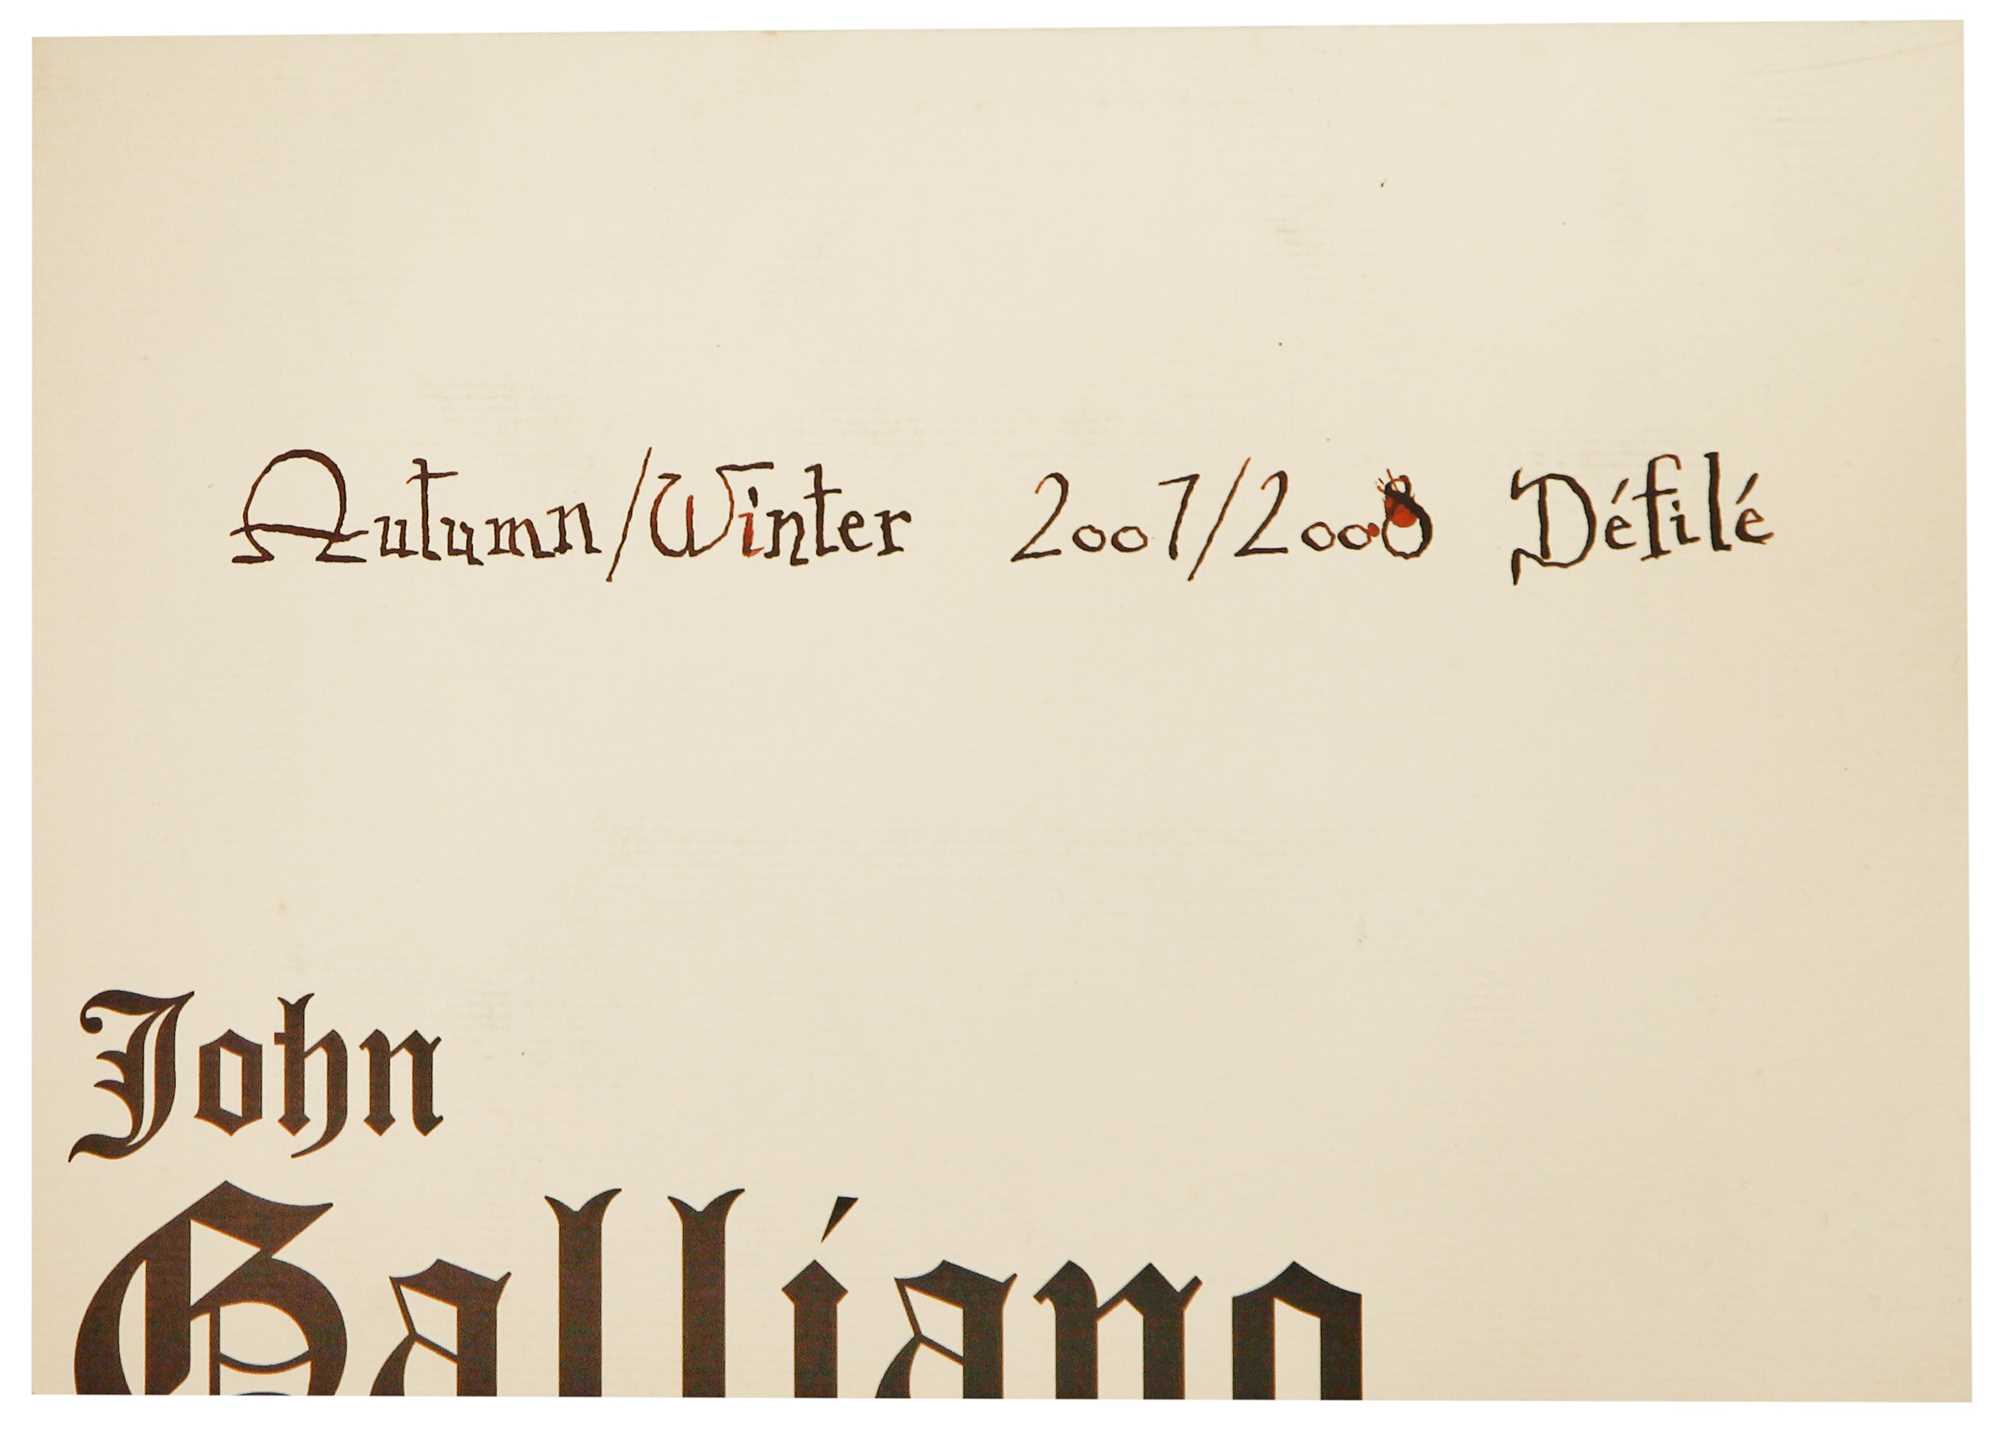 Autumn/Winter 2007/2008 Défilé
John
Galliano